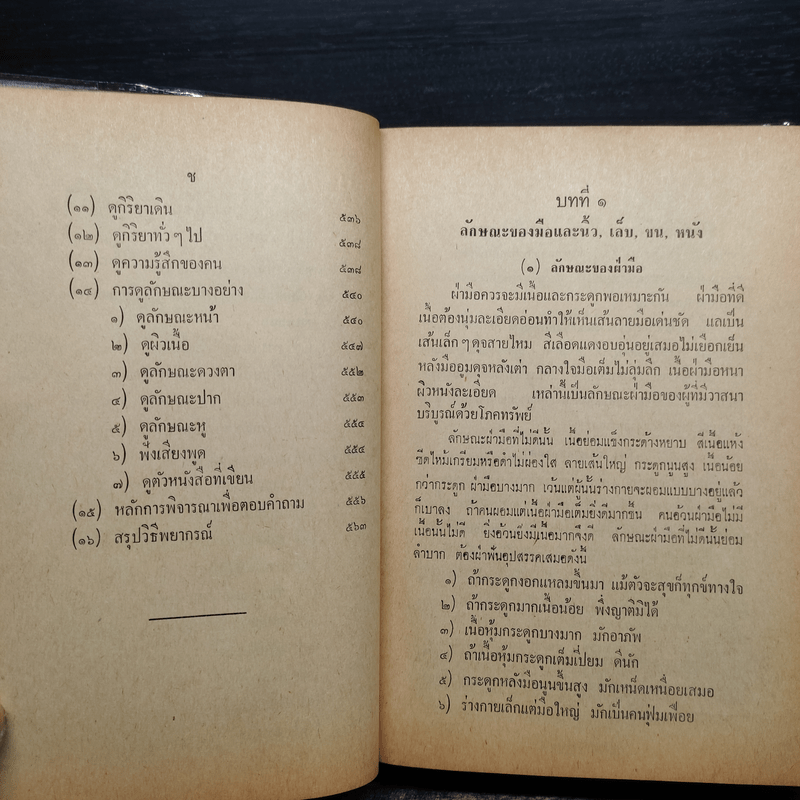 ช
(๑๑) ดูกิริยาเดิน ๕๓๖
(๑๒) ดูกิริยาทั่ว ๆ ไป ๕๓๘
(๑๓) ดูความรู้สึกของคน ๕๓๘
(๑๔) การดูลักษณะบางอย่าง ๕๔๐
๑) ดูลักษณะหน้า ๕๔๐
๒) ดูผิวเนื้อ ๕๔๗
๓) ดูลักษณะดวงตา ๕๕๒
๔) ดูลักษณะปาก ๕๕๓
๕) ดูลักษณะหู ๕๕๔
๖) ฟังเสียงพูด ๕๕๔
๗) ดูตัวหนังสือที่เขียน ๕๕๕
(๑๕) หลักการพิจารณาเพื่อตอบคำถาม ๕๕๖
(๑๖) สรุปวิธีพยากรณ์ ๕๖๓
บทที่ ๑
ลักษณะของมือและนิ้ว, เล็บ, ขน, หนัง
(๑) ลักษณะของฝ่ามือ
ฝ่ามือควรจะมีเนื้อและกระดูกพอเหมาะกัน ฝ่ามือที่ดี
เนื้อต้องนุ่มละเอียดอ่อนทำให้เห็นเส้นลายมือเด่นชัด แลเป็น
เส้นเล็ก ๆ ดุจสายไหม สีเลือดแดงอบอุ่นอยู่เสมอไม่เยือกเย็น
หลังมืออูมดุจหลังเต่า กลางใจมือเต็มไม่ลุ่มลึก เนื้อฝ่ามือหนา
ผิวหนังละเอียด เหล่านี้เป็นลักษณะฝ่ามือของผู้ที่มีวาสนา
บริบูรณ์ด้วยโภคทรัพย์
ลักษณะฝ่ามือที่ไม่ดีนั้น เนื้อย่อมแข็งกระด้างหยาบ สีเนื้อแห้ง
ซีดไหม้เกรียมหรือดำไม่ผ่องใส ลายเส้นใหญ่ กระดูกนูนสูง เนื้อน้อย
กว่ากระดูก ฝ่ามือบางมาก เว้นแต่ผู้นั้นร่างกายจะผอมแบบบางอยู่แล้ว
ก็เบาลง ถ้าคนผอมแต่เนื้อฝ่ามือเต็มยิ่งดีมากขึ้น คนอ้วนฝ่ามือไม่มี
เนื้อนั้นไม่ดี ยิ่งอ้วนยิ่งมีเนื้อมากจึงดี ลักษณะฝ่ามือที่ไม่ดีนั้นย่อม
ลำบาก ต้องฝ่าฟันอุปสรรคเสมอดังนี้
๑) ถ้ากระดูกงอกแหลมขึ้นมา แม้ตัวจะสุขก็ทุกข์ทางใจ
๒) ถ้ากระดูกมากเนื้อน้อย พึ่งญาติมิได้
๓) เนื้อหุ้มกระดูกบางมาก มักอาภัพ
๔) ถ้าเนื้อหุ้มกระดูกเต็มเปี่ยม ดีนัก
๕) กระดูกหลังมือนูนขึ้นสูง มักเหน็ดเหนื่อยเสมอ
๖) ร่างกายเล็กแต่มือใหญ่ มักเป็นคนฟุ่มเฟือย